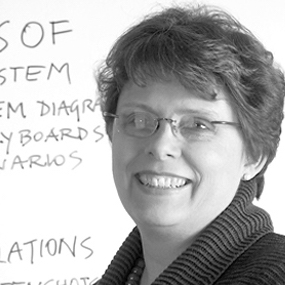 S OF
STEM
EM DIAGRA
Y BOARDS
NARIOS
LATIONS
EENSHOTS